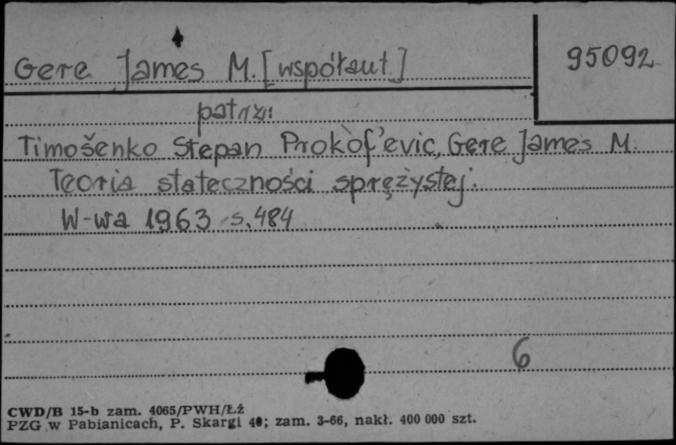 Gere James M. [współaut.]
95092
patrz:
Timošenko Stepan Prokof'evic, Gere James M.
Teoria stateczności sprężystej.
W-wa 1963 s. 484
6
CWD/B 15-b zam. 4065/PWH/Łź
PZG w Pabianicach, P. Skargi 40; zam. 3-66, nakł. 400 000 szt.